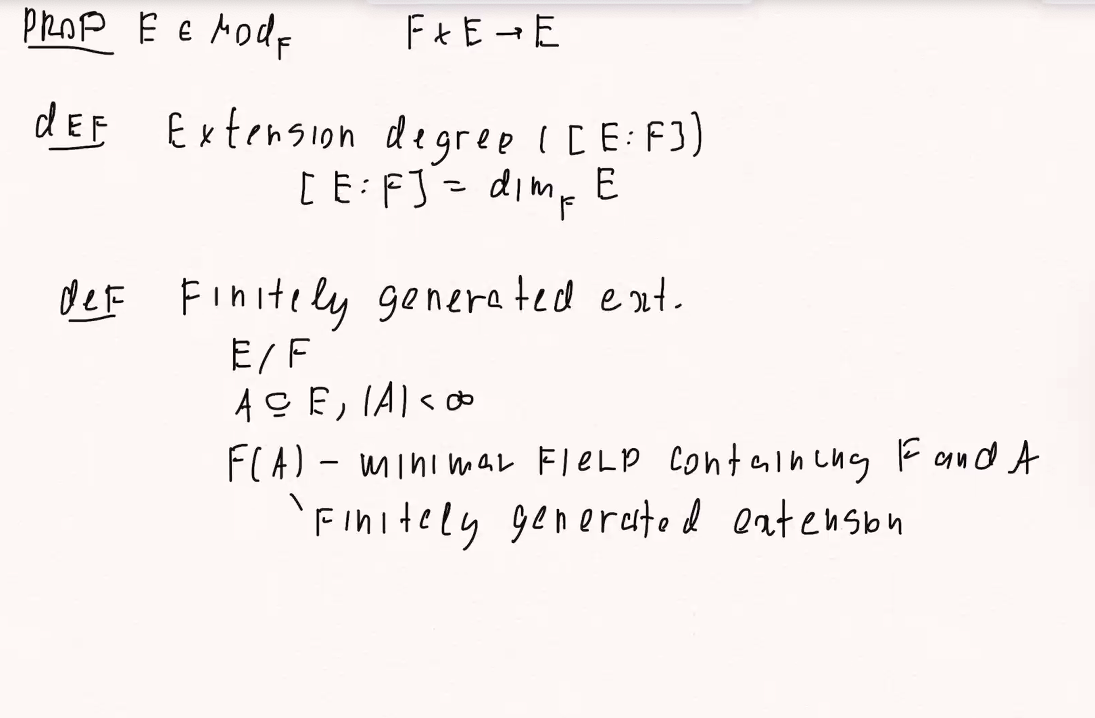 PROP E ∈ Mod_F F × E → E
dEF Extension degree ([E:F])
[E:F] = dim_F E
deF Finitely generated ext.
E/F
A ⊆ E, |A| < ∞
F(A) - minimal FIELD containing F and A
Finitely generated extension